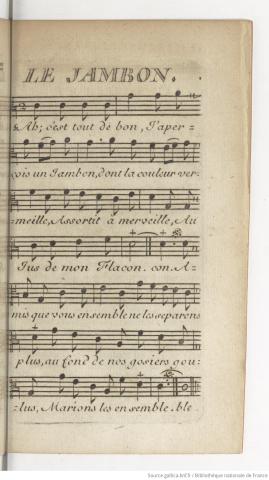 LE JAMBON.
Ah; c'est tout de bon, J'aper=
çois un Jambon, dont la couleur ver-
=meille, Assortit à merveille, Au
Jus de mon Flacon. con. A-
mis que vous ensemble ne les separons
plus, au fond de nos gosiers gou:
=lus, Marions les ensemble. ble.
Source gallica.bnf.fr / Bibliothèque nationale de France